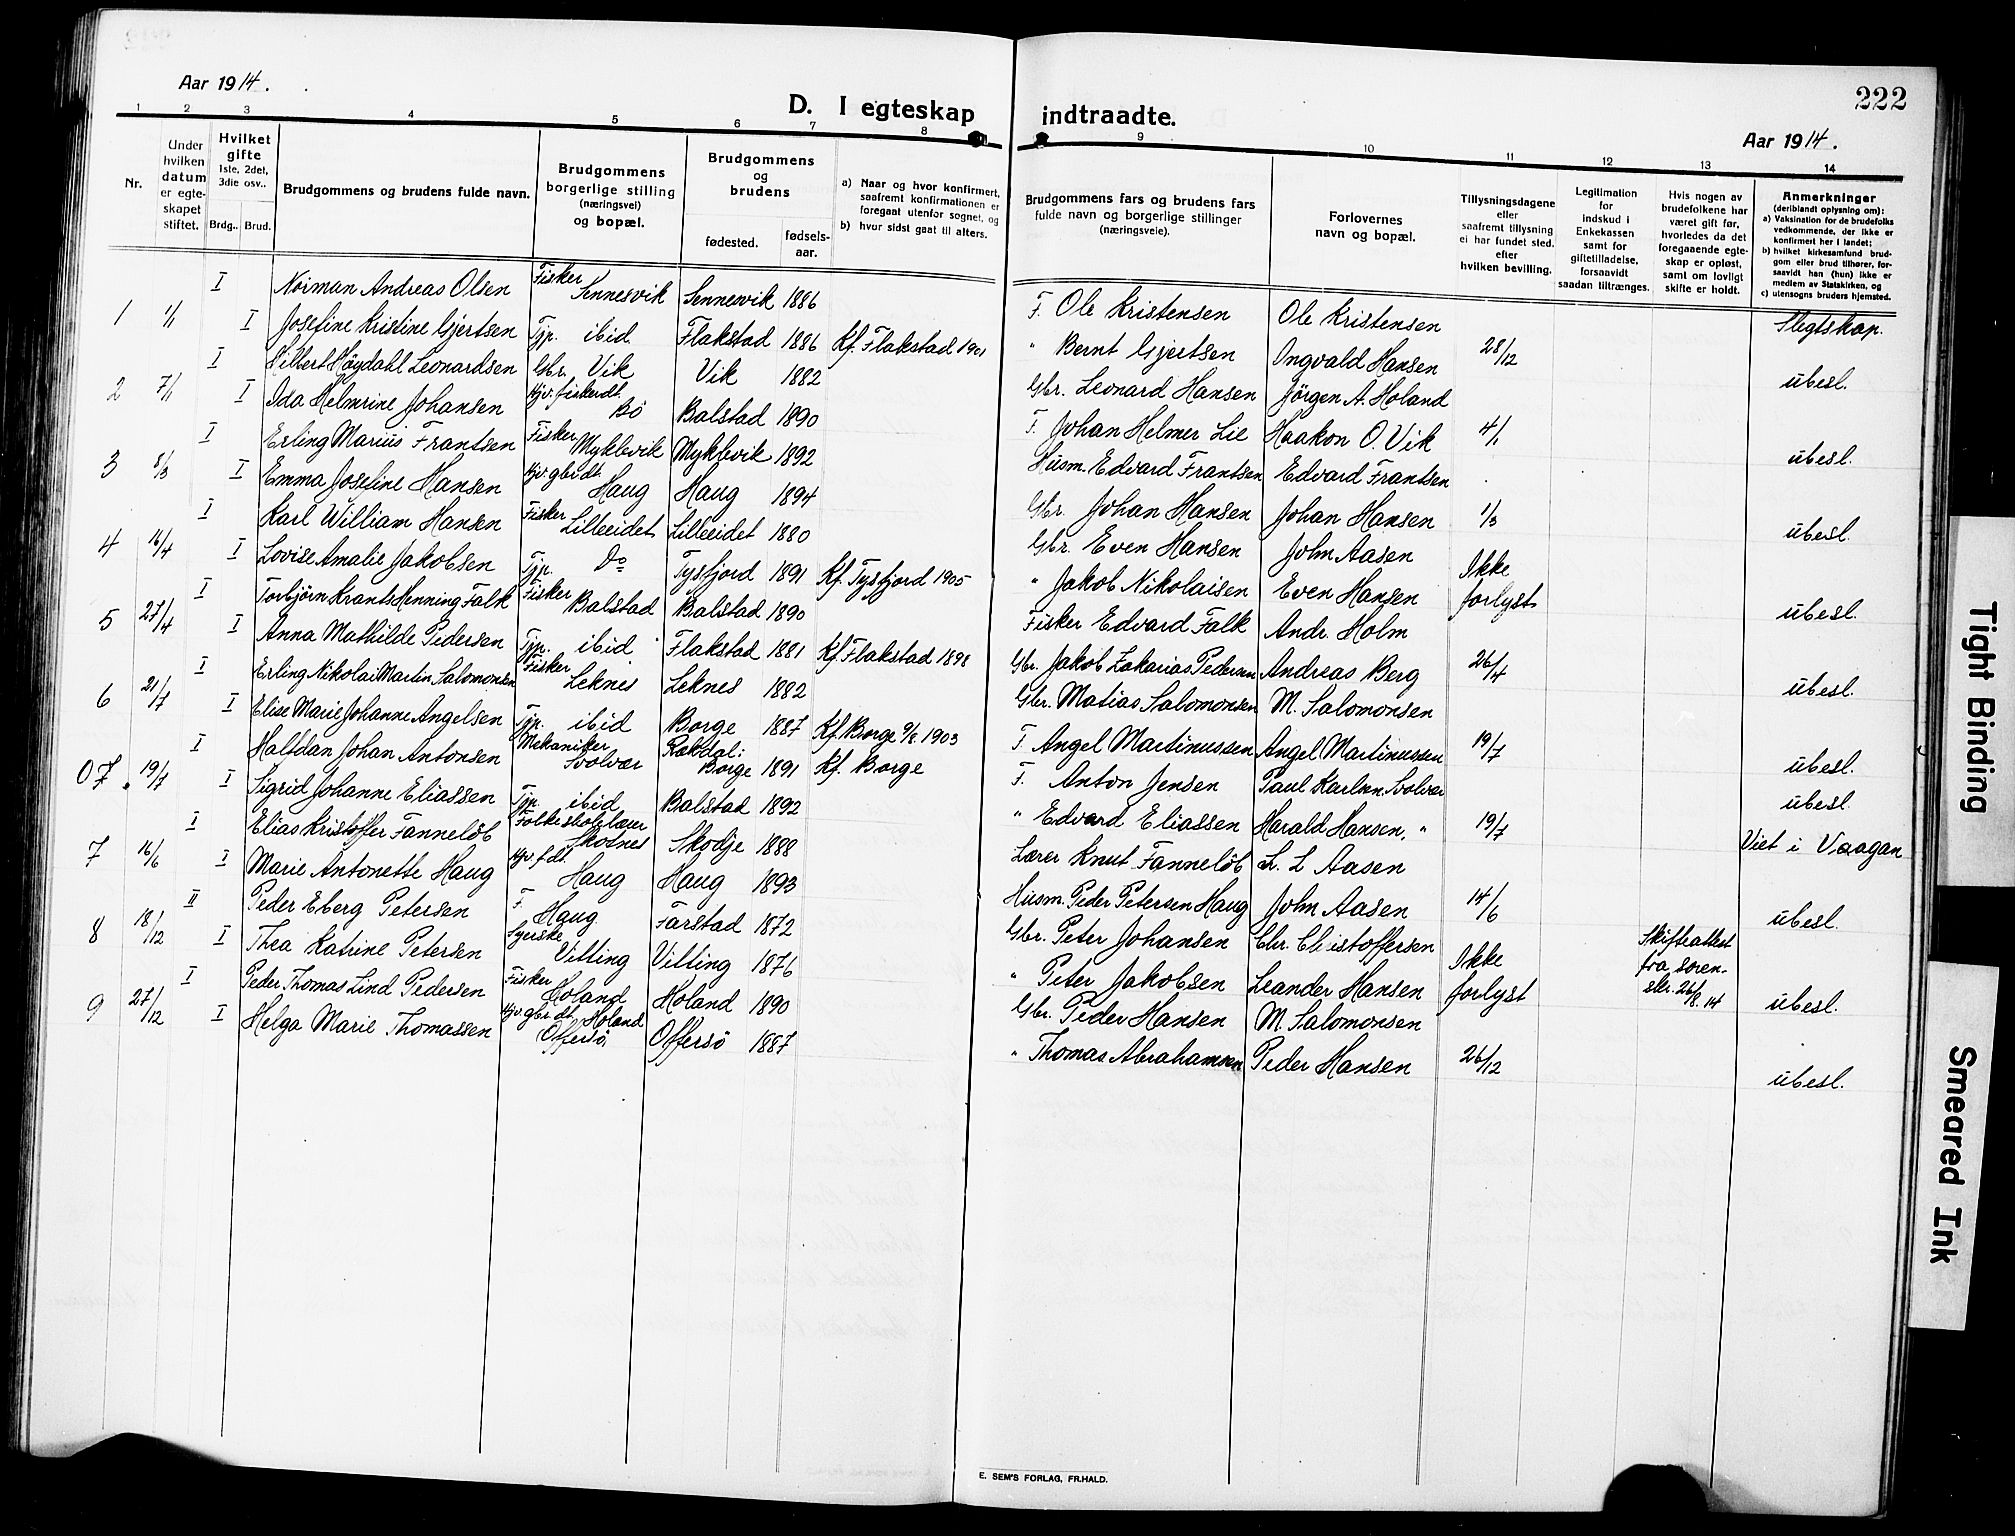 Aar 1914.
D. I egteskap
1 2 3 4 5 6 7 8
Nr.
Under hvilken datum er egte-skapet stiftet.
Hvilket gifte 1ste, 2det, 3die osv..
Brdg.. Brud.
Brudgommens og brudens fulde navn.
Brudgommens borgerlige stilling (næringsvei) og bopæl.
Brudgommens og brudens
fødested. fødsels-aar.
a) Naar og hvor konfirmert, saafremt konfirmationen er foregaat utenfor sognet, og
b) hvor sidst gaat til alters.
I Norman Andreas Olsen Fisker Sennesvik Sennesvik 1886
1 1/1 I Josefine Kristine Gjertsen Tjp. ibid. Flakstad 1886 Kf. Flakstad 1901
I Hilbert Høydahl Leonardsen Gbr. Vik Vik 1882
2 7/1 I Ida Helmrine Johansen Hjv. fiskerdt. Bö Balstad 1890
I Erling Marius Frantsen Fisker Myklevik Myklevik 1892
3 8/3 I Emma Josefine Hansen Hjv. gbr.dt. Haug Haug 1894
I Karl William Hansen Fisker Lilleeidet Lilleeidet 1880
4 16/4 I Lovise Amalie Jakobsen Tjp. Do Tysfjord 1891 Kf. Tysfjord 1905
I Torbjörn Krants Henning Falk Fisker Balstad Balstad 1890
5 27/4 I Anna Mathilde Pedersen Tjp. ibid Flakstad 1881 Kf. Flakstad 1898
I Erling Nikolai Martin Salomonsen Fisker Leknes Leknes 1882
6 21/7 I Elise Marie Johanne Angelsen Tjp. ibid Borge 1887 Kf. Borge 1903
I Halfdan Johan Antonsen Mekaniker Svolvær Rökdal: Borge 1891 Kf. Borge
07. 19/7 I Sigrid Johanne Eliassen Tjp. ibid Balstad 1892
I Elias Kristoffer Fannelöb Folkeskolelærer Skotnes Skodje 1888
7 16/6 I Marie Antonette Haug Hjv. f.dt. Haug Haug 1893
II Peder Eberg Petersen F. Haug Farstad 1872
8 18/12 I Thea Katrine Petersen Syerske Vitting Vitting 1876
I Peder Thomas Lind Pedersen Fisker Holand Holand 1890
9 27/12 I Helga Marie Thomassen Hjv gbr dt. Holand Offersö Offersö 1887
222
indtraadte.
Aar 1914.
9 10 11 12 13 14
Brudgommens fars og brudens fars fulde navn og borgerlige stillinger (næringsveie).
Forlovernes navn og bopæl.
Tillysningsdagene eller saafremt tillysning ei har fundet sted. efter hvilken bevilling.
Legitimation for indskud i Enkekassen samt for giftetilladelse, forsaavidt saadan tiltrænges.
Hvis nogen av brudefolkene har været gift før, hvorledes da det foregaaende egte-skap er opløst, samt om lovligt skifte er holdt.
Anmerkninger (deriblandt oplysning om):
a) Vaksination for de brudefolks vedkommende, der ikke er konfirmert her i landet;
b) hvilket kirkesamfund brud-gom eller brud tilhører, for-saavidt han (hun) ikke er medlem av Statskirken, og
c) utensogns bruders hjemsted.
F. Ole Kristensen Ole Kristensen Slegtskap.
" Bernt Gjertsen Ongvald Hansen 28/12 ubesl.
Gbr. Leonard Hansen Jörgen A. Holand
F. Johan Helmer Lie Haakon O. Vik 4/1 ubesl.
Husm. Edvard Frantsen Edvard Frantsen
Gbr. Johan Hansen Johan Hansen 1/3 ubesl.
Gbr. Even Hansen John Aasen Ikke
" Jakob Nikolaisen Even Hansen forlyst ubesl.
Fisker Edvard Falk Andr. Holm
Gbr. Jakob Zakarias Pedersen Andreas Berg 26/4 ubesl.
Gbr. Matias Salomonsen M. Salomonsen
F. Angel Martinussen Angel Martinussen 19/7 ubesl.
F. Anton Jensen Paul Karlsen, Svolvær ubesl.
" Edvard Eliassen Harald Hansen, " 19/7 Viet i Vaagan
Lærer Knut Fannelöb L. L Aasen
Husm. Peder Petersen Haug John Aasen 14/6 ubesl.
Gbr. Peter Johansen Chr. Christoffersen Ikke Skifteattest
" Peter Jakobsen Leander Hansen forlyst fra soren-skr. 26/8. 14 ubesl.
Gbr. Peder Hansen M. Salomonsen
" Thomas Abrahamsen Peder Hansen 26/12 ubesl.
E. SEM'S FORLAG, FR.HALD.
Tight Binding
Smeared Ink